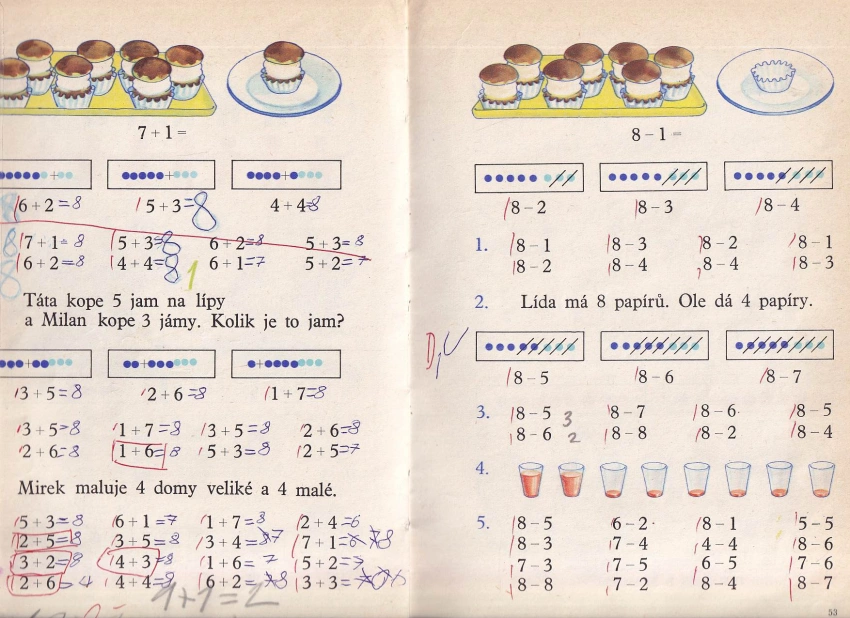 7 + 1 =
6 + 2 = 8 5 + 3 = 8 4 + 4 = 8
7 + 1 = 8 5 + 3 = 8 6 + 2 = 8 5 + 3 = 8
6 + 2 = 8 4 + 4 = 8 6 + 1 = 7 5 + 2 = 7
1
Táta kope 5 jam na lípy
a Milan kope 3 jámy. Kolik je to jam?
3 + 5 = 8 2 + 6 = 8 1 + 7 = 8
3 + 5 = 8 1 + 7 = 8 3 + 5 = 8 2 + 6 = 8
2 + 6 = 8 1 + 6 = 8 5 + 3 = 8 2 + 5 = 7
Mirek maluje 4 domy veliké a 4 malé.
5 + 3 = 8 6 + 1 = 7 1 + 7 = 8 2 + 4 = 6
2 + 5 = 8 3 + 5 = 8 3 + 4 = 7 7 + 1 = 8
3 + 2 = 8 4 + 3 = 8 1 + 6 = 7 5 + 2 = 7
2 + 6 4 + 4 = 8 6 + 2 = 8 3 + 3 =
1+1=2
8 – 1 =
8 – 2 8 – 3 8 – 4
1. 8 – 1 8 – 3 8 – 2 8 – 1
8 – 2 8 – 4 8 – 4 8 – 3
2. Lída má 8 papírů. Ole dá 4 papíry.
8 – 5 8 – 6 8 – 7
3. 8 – 5 3 8 – 7 8 – 6 8 – 5
8 – 6 2 8 – 8 8 – 2 8 – 4
4.
5. 8 – 5 6 – 2 8 – 1 5 – 5
8 – 3 7 – 4 4 – 4 8 – 6
7 – 3 7 – 5 6 – 5 7 – 6
8 – 8 7 – 2 8 – 4 8 – 7
53